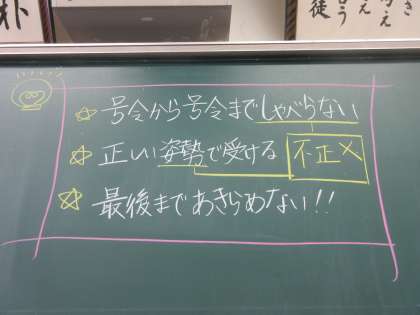 ☆ 号令から号令までしゃべらない
☆ 正しい姿勢で受ける 不正×
☆ 最後まであきらめない!!